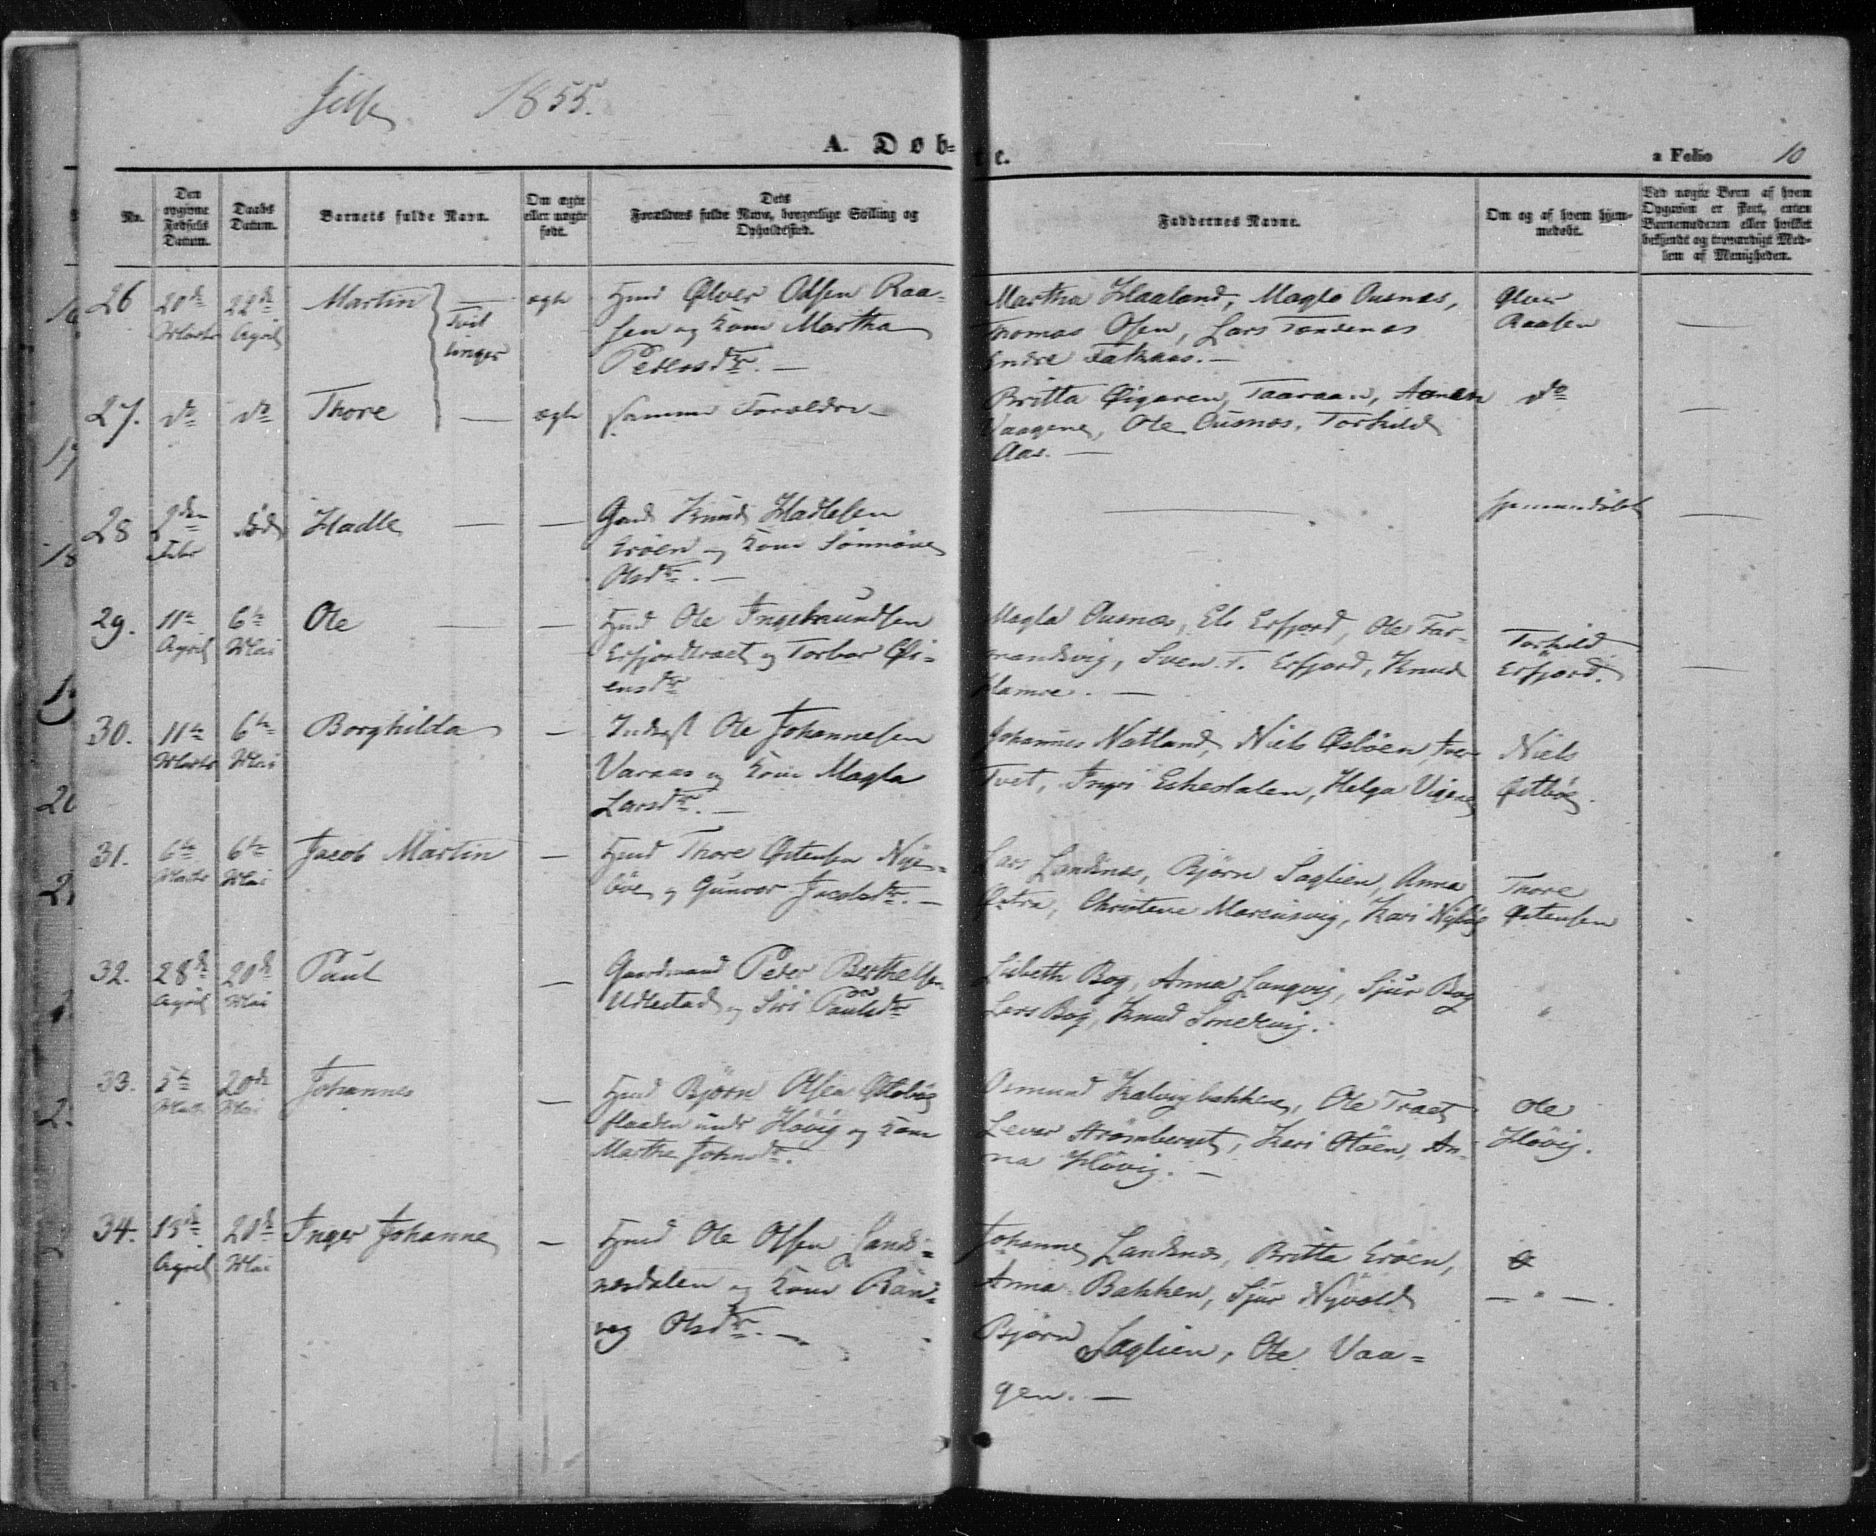 1855.
A. Døb-
te.
a Folio 10
No.
Den
opgivne
Fødsels
Datum.
Daabs
Datum.
Barnets fulde Navn.
Om ægte
eller uægte
født.
Dets
Forældres fulde Navn, borgerlige Stilling og
Opholdssted.
Faddernes Navne.
Om og af hvem hjem-
medøbt.
Ved uægte Børn af hvem
Opgaven er skeet, enten
Barnemoderen eller hvilket
bekjendt og troværdigt Med-
lem af Menigheden.
26 20de Marts 22de April Martin Tvil lingen — ægte
Hmd Ølver Olsen Raa-
sen og Kone Martha
Pedersdtr. —
Martha Haaland, Magla Ousnæs,
Thomas Osen, Lars
Endre —
Ølver
Raasen —
27. do do Thore — ægte samme Forældre —
Britta Øigaren,
Vaagene, Ole Ousnæs, Torkild
Aas. —
do —
28 2den Febr død Hadle — —
Gmd Knud Hadlesen
Erøen og Kone Sønnøve
Olsdtr. —
— hjemmedøbt —
29. 11te April 6te Mai Ole — —
Hmd Ole Ingebreundsen
Erfjordtræet og Torbor Øi-
ensdtr
Magla Ousnæs, Els Erfjord, Ole Far-
grandsvig, Sven T. Erfjord, Knud
Hamre. —
Torkild
Erfjord. —
30. 11te Marts 6te Mai Borghilda —
Inderst Ole Johannesen
Varaas og Kone Magla
Larsdtr. —
Johannes Natland, Niels Østbøen, Iver
Tvet, Ingri Eskedalen, Helga Vigene
Niels
Østbø.
31. 6te Marts 6te Mai Jacob Martin —
Hmd Thore Østensen Nye-
bøe og Gunvor Jacobsdtr. —
Lars Landsnæs, Bjørn Saglien, Anna
Østra, Christene Marcusvig, Kari Nybø
Thore
Østensen
32. 28de April 20de Mai Paul —
Gaardmand Peder Berthelsen
Udlestad og Siri Paulsdtr
Lisbeth Bog, Anna Langvig, Sjur Bog
Lars Bog, Knud Sondevig.
"
33. 5te Marts 20de Mai Johannes —
Hmd Bjørn Olsen Østebø
flaaden under Høvig og Kone
Martha Johnsdtr.
Osmund Kalvigbakken, Ole Træet
Lever Strømberget, Kari Oløen, An-
na Høvig. —
Ole
Høvig.
34. 13de April 20de Mai Inger Johanne —
Hmd Ole Olsen Lands-
næsdalen og Kone Ran-
veg Olsdtr. —
Johanne Landsnæs, Britta Erøen,
Anna Bakken, Sjur Nyvold
Bjørn Saglien, Ole Vaa-
gen. —
— " —.